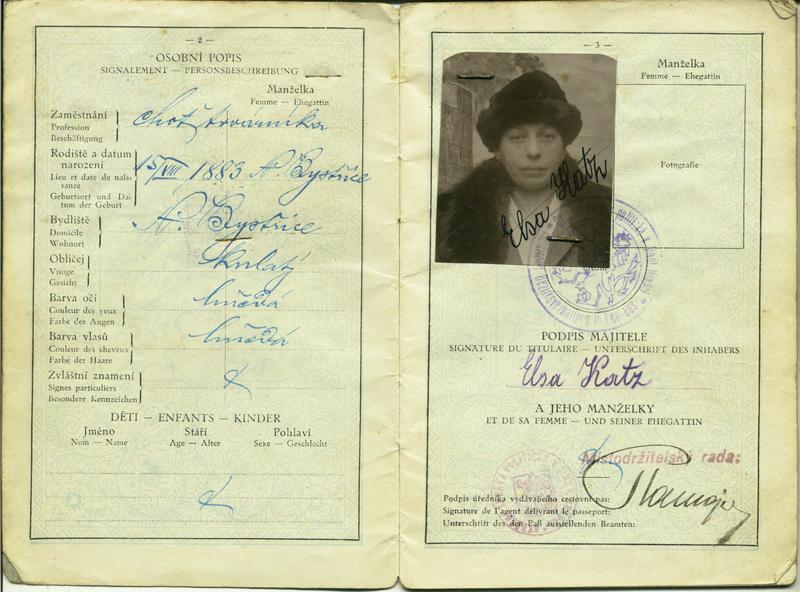 — 2 —
OSOBNÍ POPIS
SIGNALEMENT — PERSONSBESCHREIBUNG
Manželka
Femme — Ehegattin
Zaměstnání
Profession
Beschäftigung
choť továrníka
Rodiště a datum
narození
Lieu et date de nais-
sance
Geburtsort und Da-
tum der Geburt
15/VIII 1883 N. Bystřice
Bydliště
Domicile
Wohnort
N. Bystřice
Obličej
Visage
Gesicht
kulatý
Barva očí
Couleur des yeux
Farbe der Augen
hnědá
Barva vlasů
Couleur des cheveux
Farbe der Haare
hnědá
Zvláštní znamení
Signes particuliers
Besondere Kennzeichen
DĚTI — ENFANTS — KINDER
Jméno Stáří Pohlaví
Nom — Name Age — Alter Sexe — Geschlecht
— 3 —
Manželka
Femme — Ehegattin
Fotografie
Elsa Katz
PODPIS MAJITELE
SIGNATURE DU TITULAIRE — UNTERSCHRIFT DES INHABERS
Elsa Katz
A JEHO MANŽELKY
ET DE SA FEMME — UND SEINER EHEGATTIN
Místodržitelský rada:
Podpis úředníka vydávajícího cestovní pas:
Signature de l'agent délivrant le passeport:
Unterschrift des den Paß ausstellenden Beamten: